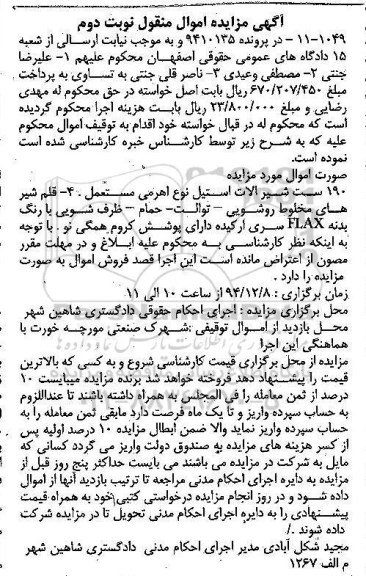 آگهی مزایده اموال منقول نوبت دوم
۱۱-۱۰۴۹ - در پرونده ۹۴۱۰۱۳۵ و به موجب نیابت ارسالی از شعبه
۱۵ دادگاه های عمومی حقوقی اصفهان محکوم علیهم ۱- علیرضا
جنتی ۲- مصطفی وعیدی ۳- ناصر قلی جنتی به تساوی به پرداخت
مبلغ ۶۷۰/۲۰۷/۴۵۰ ریال بابت اصل خواسته در حق محکوم له مهدی
رضایی و مبلغ ۲۳/۸۰۰/۰۰۰ ریال بابت هزینه اجرا محکوم گردیده
است که محکوم له در قبال خواسته خود اقدام به توقیف اموال محکوم
علیه که به شرح زیر توسط کارشناس خبره کارشناسی شده است
نموده است.
صورت اموال مورد مزایده
۱۹۰ ست شیر الات استیل نوع اهرمی مستعمل . ۴- قلم شیر
های مخلوط روشویی – توالت- حمام – ظرف شویی با رنگ
بدنه FLAX سری ارکیده دارای پوشش کروم همگی نو . با توجه
به اینکه نظر کارشناسی به محکوم علیه ابلاغ و در مهلت مقرر
مصون از اعتراض مانده است این اجرا قصد فروش اموال به صورت
مزایده را دارد .
زمان برگزاری : ۹۴/۱۲/۸ از ساعت ۱۰ الی ۱۱
محل برگزاری مزایده : اجرای احکام حقوقی دادگستری شاهین شهر
محل بازدید از اموال توقیفی :شهرک صنعتی مورچه خورت با
هماهنگی این اجرا
مزایده از محل برگزاری قیمت کارشناسی شروع و به کسی که بالاترین
قیمت را پیشنهاد دهد فروخته خواهد شد برنده مزایده میبایست ۱۰
درصد از ثمن معامله را فی المجلس به همراه داشته باشند تا عنداللزوم
به حساب سپرده واریز و تا یک ماه فرصت دارد مابقی ثمن معامله را به
حساب سپرده واریز نماید والا ضمن ابطال مزایده ۱۰ درصد اولیه پس
از کسر هزینه های مزایده به صندوق دولت واریز می گردد کسانی که
مایل به شرکت در مزایده می باشند می بایست حداکثر پنج روز قبل از
مزایده به دایره اجرای احکام مدنی مراجعه تا ترتیب بازدید آنها از اموال
داده شود و در روز انجام مزایده درخواستی کتبی خود به همراه قیمت
پیشنهادی را به دایره اجرای احکام مدنی تحویل تا در مزایده شرکت
داده شوند ./
مجید شکل آبادی مدیر اجرای احکام مدنی دادگستری شاهین شهر
م الف ۱۲۶۷